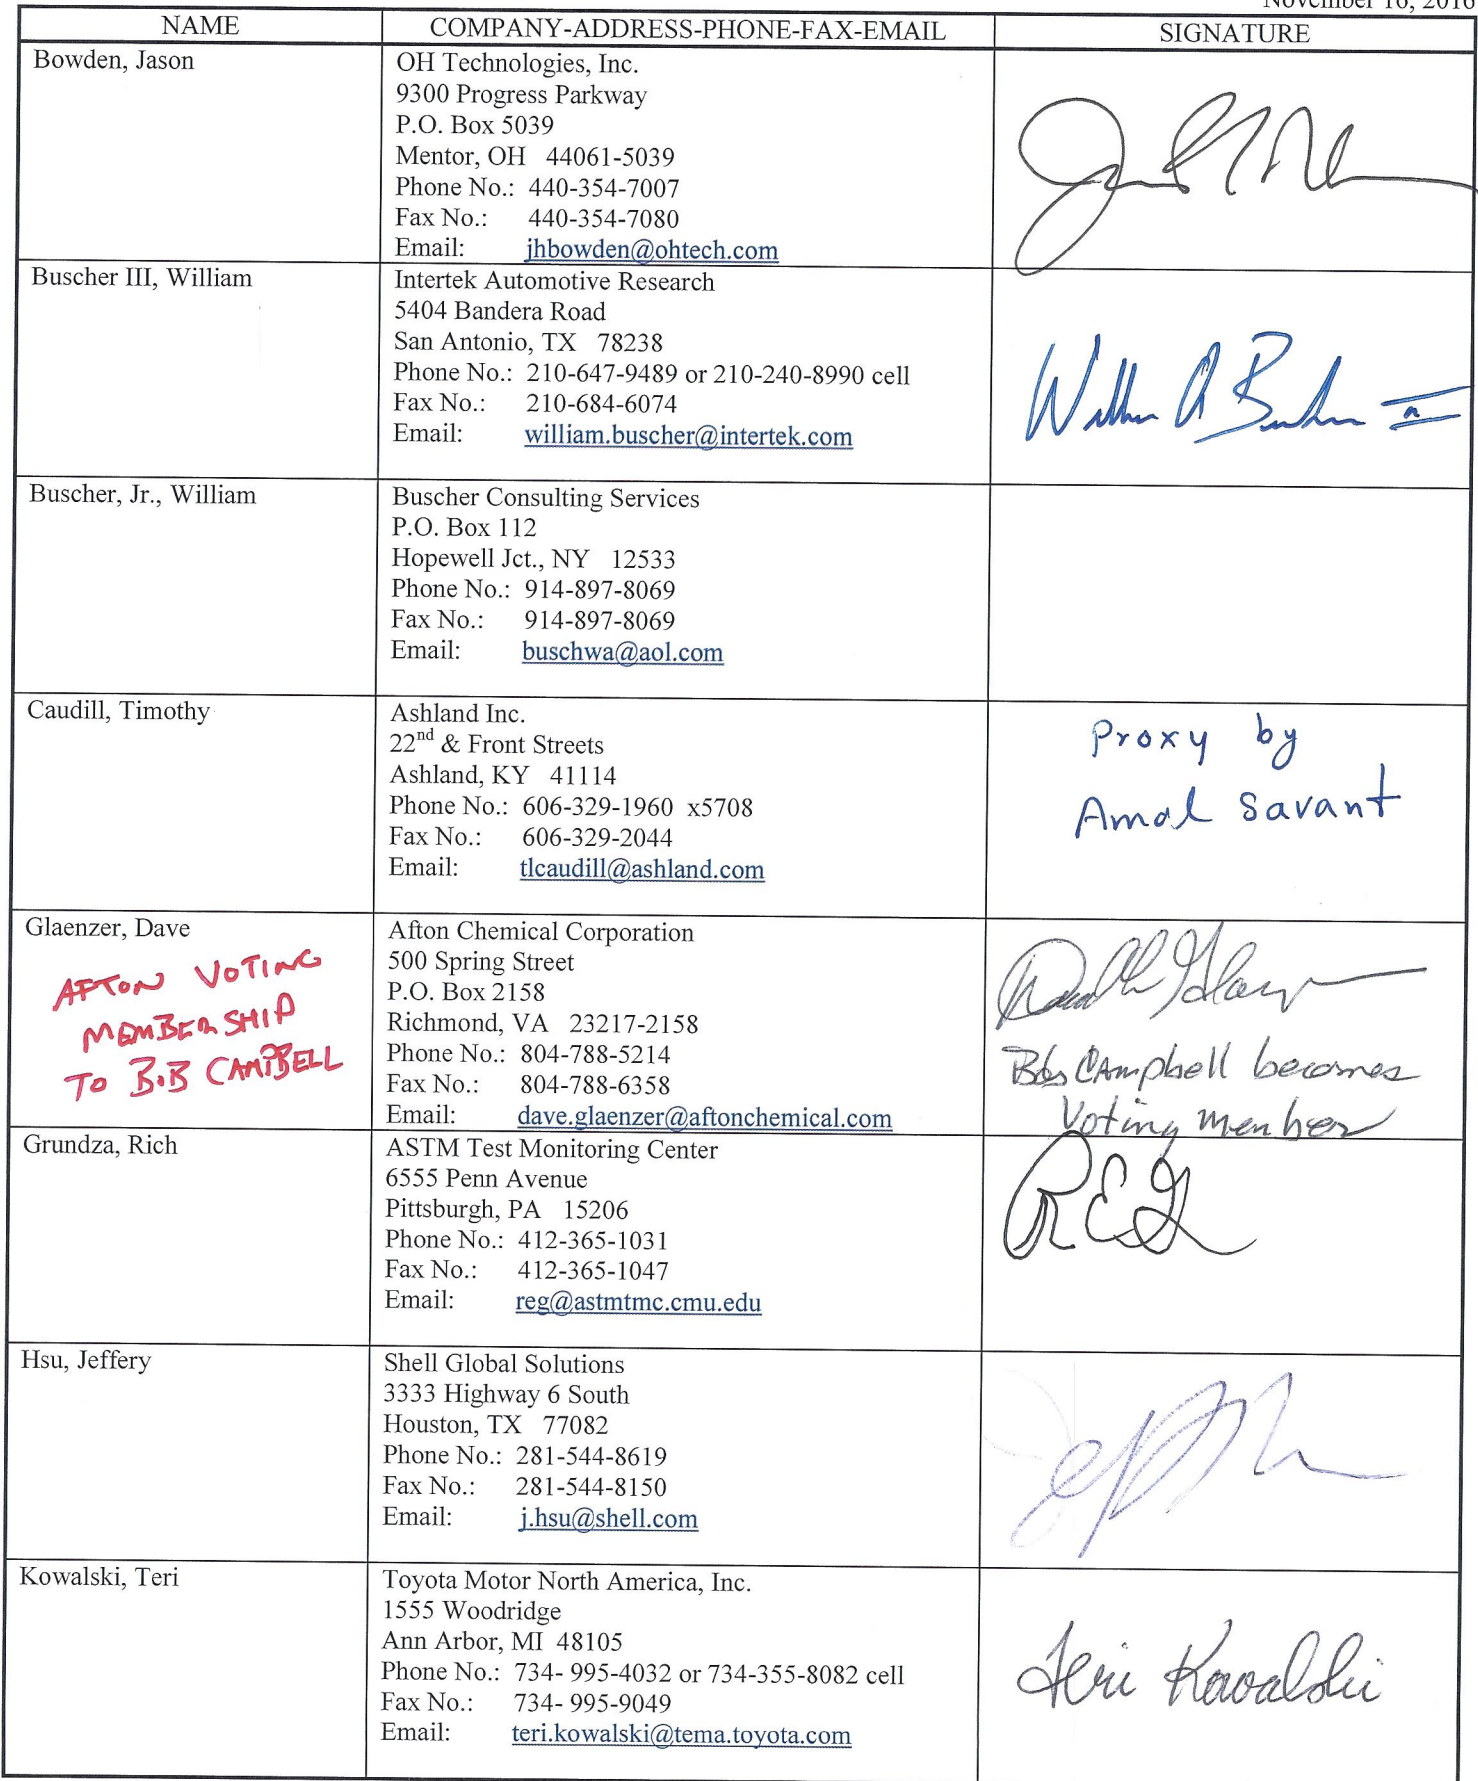 November 16, 2016
NAME
COMPANY-ADDRESS-PHONE-FAX-EMAIL
SIGNATURE
Bowden, Jason
OH Technologies, Inc.
9300 Progress Parkway
P.O. Box 5039
Mentor, OH 44061-5039
Phone No.: 440-354-7007
Fax No.: 440-354-7080
Email: jhbowden@ohtech.com
Buscher III, William
Intertek Automotive Research
5404 Bandera Road
San Antonio, TX 78238
Phone No.: 210-647-9489 or 210-240-8990 cell
Fax No.: 210-684-6074
Email: william.buscher@intertek.com
Buscher, Jr., William
Buscher Consulting Services
P.O. Box 112
Hopewell Jct., NY 12533
Phone No.: 914-897-8069
Fax No.: 914-897-8069
Email: buschwa@aol.com
Caudill, Timothy
Ashland Inc.
22nd & Front Streets
Ashland, KY 41114
Phone No.: 606-329-1960 x5708
Fax No.: 606-329-2044
Email: tlcaudill@ashland.com
Proxy by
Amol Savant
Glaenzer, Dave
AFTON VOTING
MEMBERSHIP
TO BOB CAMPBELL
Afton Chemical Corporation
500 Spring Street
P.O. Box 2158
Richmond, VA 23217-2158
Phone No.: 804-788-5214
Fax No.: 804-788-6358
Email: dave.glaenzer@aftonchemical.com
Bob Campbell becomes
Voting member
Grundza, Rich
ASTM Test Monitoring Center
6555 Penn Avenue
Pittsburgh, PA 15206
Phone No.: 412-365-1031
Fax No.: 412-365-1047
Email: reg@astmtmc.cmu.edu
REG
Hsu, Jeffery
Shell Global Solutions
3333 Highway 6 South
Houston, TX 77082
Phone No.: 281-544-8619
Fax No.: 281-544-8150
Email: j.hsu@shell.com
Kowalski, Teri
Toyota Motor North America, Inc.
1555 Woodridge
Ann Arbor, MI 48105
Phone No.: 734- 995-4032 or 734-355-8082 cell
Fax No.: 734- 995-9049
Email: teri.kowalski@tema.toyota.com
Teri Kowalski